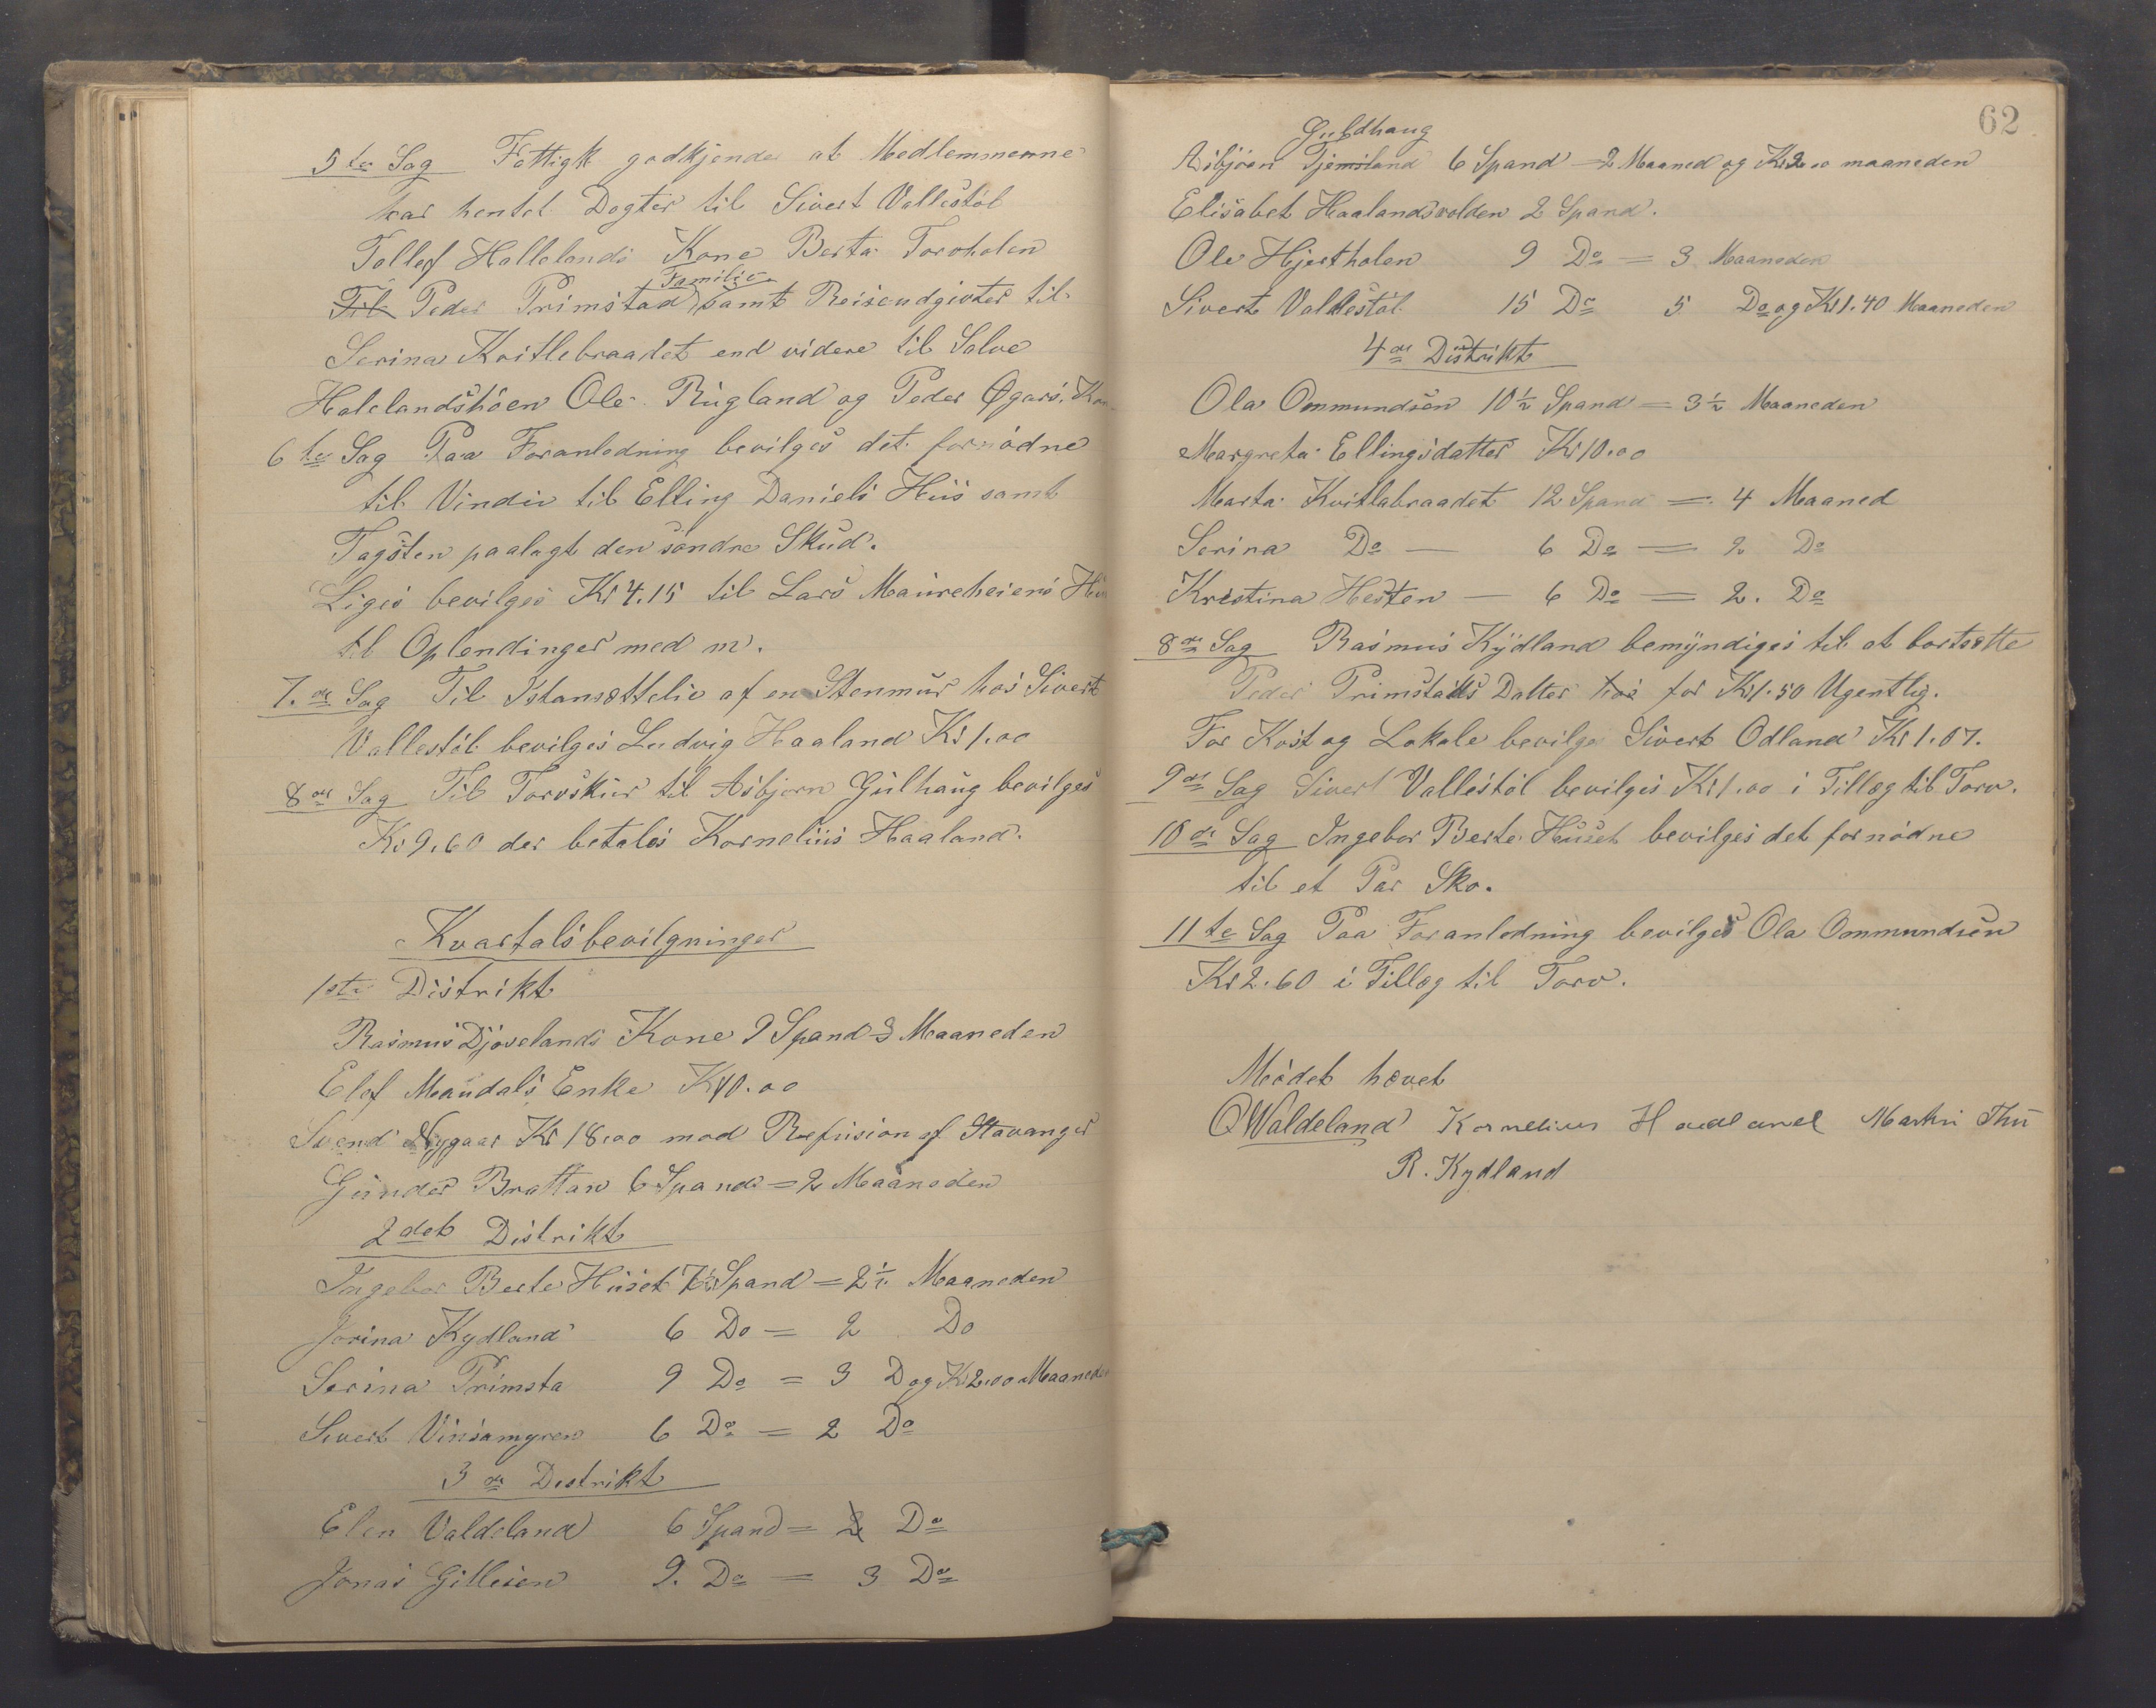 5te Sag Fattigk godkjender at Medlemmerne
har hentet Dogter til Sivert Vallestöl
Tollef Hallelands Kone Berta Torvholen
Familie
Til Peder Primstad samt Reiseudgivter til
Serina Kvitlebraadet end videre til Salve
Halelandshöen Ole Rügland og Peder Øgars. Kon
6te Sag Paa Foranledning bevilges det fornödne
til Vindu til Elling Daniels Hüs samt
Tagsten paalagt den söndre Skud.
Liges bevilges Kr 4.15 til Lars Maüreheiens Hüs
til Oplendinger med m.
7.de Sag Til Istansættelse af en Stenmür hos Sivert
Vallestöl bevilges Ludvig Haaland Kr 1.00
8de Sag Til Torvskür til Asbjorn Gülhaüg bevilges
Kr 9.60 der betales Kornelius Haaland.
Kvartalsbevilgninger
1ste Distrikt
Rasmus Djövelands Kone 9 Spand 3 Maaneden
Elef Maüdals Enke Kr 10.00
Svend Nygaar Kr 18.00 mod Refüsion af Stavanger
Günder Brattan 6 Spand = 2 Maaneden
2det Distrikt
Ingebor Berte Hüset 7½ Spand = 2½ Maaneden
Jorina Kydland 6 Do = 2 Do
Serina Primsta 9 Do = 3 D og Kr 2.00 Maaneden
Sivert Vinsamyren 6 Do = 2 Do
3de Distrikt
Elen Valdeland 6 Spand = 2 Do
Jonas Gillesen 9. Do = 3 Do
62
Guldhaug
Asbjörn Tjemsland 6 Spand = 2 Maaned og Kr 2.00 maaneden
Elisabet Haalandsvolden 2 Spand.
Ole Hjertholen 9 Do = 3 Maaneden
Sivert Vallestöl 15 Do 5 Do og Kr 1.40 Maaneden
4de Distrikt
Ola Ommundsen 10½ Spand = 3½ Maaneden
Margreta Ellingsdatter Kr 10.00
Marta Kvitlabraadet 12 Spand = 4 Maaned
Serina Do — 6 Do = 2 Do
Kristina Hesten — 6 Do = 2. Do
8de Sag Rasmus Kÿdland bemÿndiges til at bortsætte
Peder Primstads Datter hos for Kr 1.50 Ugentlig.
For Kost og Lokale bevilges Sivert Odland Kr 1.07.
9de Sag Sivert Vallestöl bevilges Kr 1.00 i Tillæg til Torv.
10de Sag Ingebor Berte Hüset bevilges det fornödne
til et Par Sko.
11te Sag Paa Foranledning bevilges Ola Ommundsen
Kr 2.60 i Tillæg til Torv.
Mödet hævet
O Waldeland Kornelius Haaland Martin Thu
R. Kydland